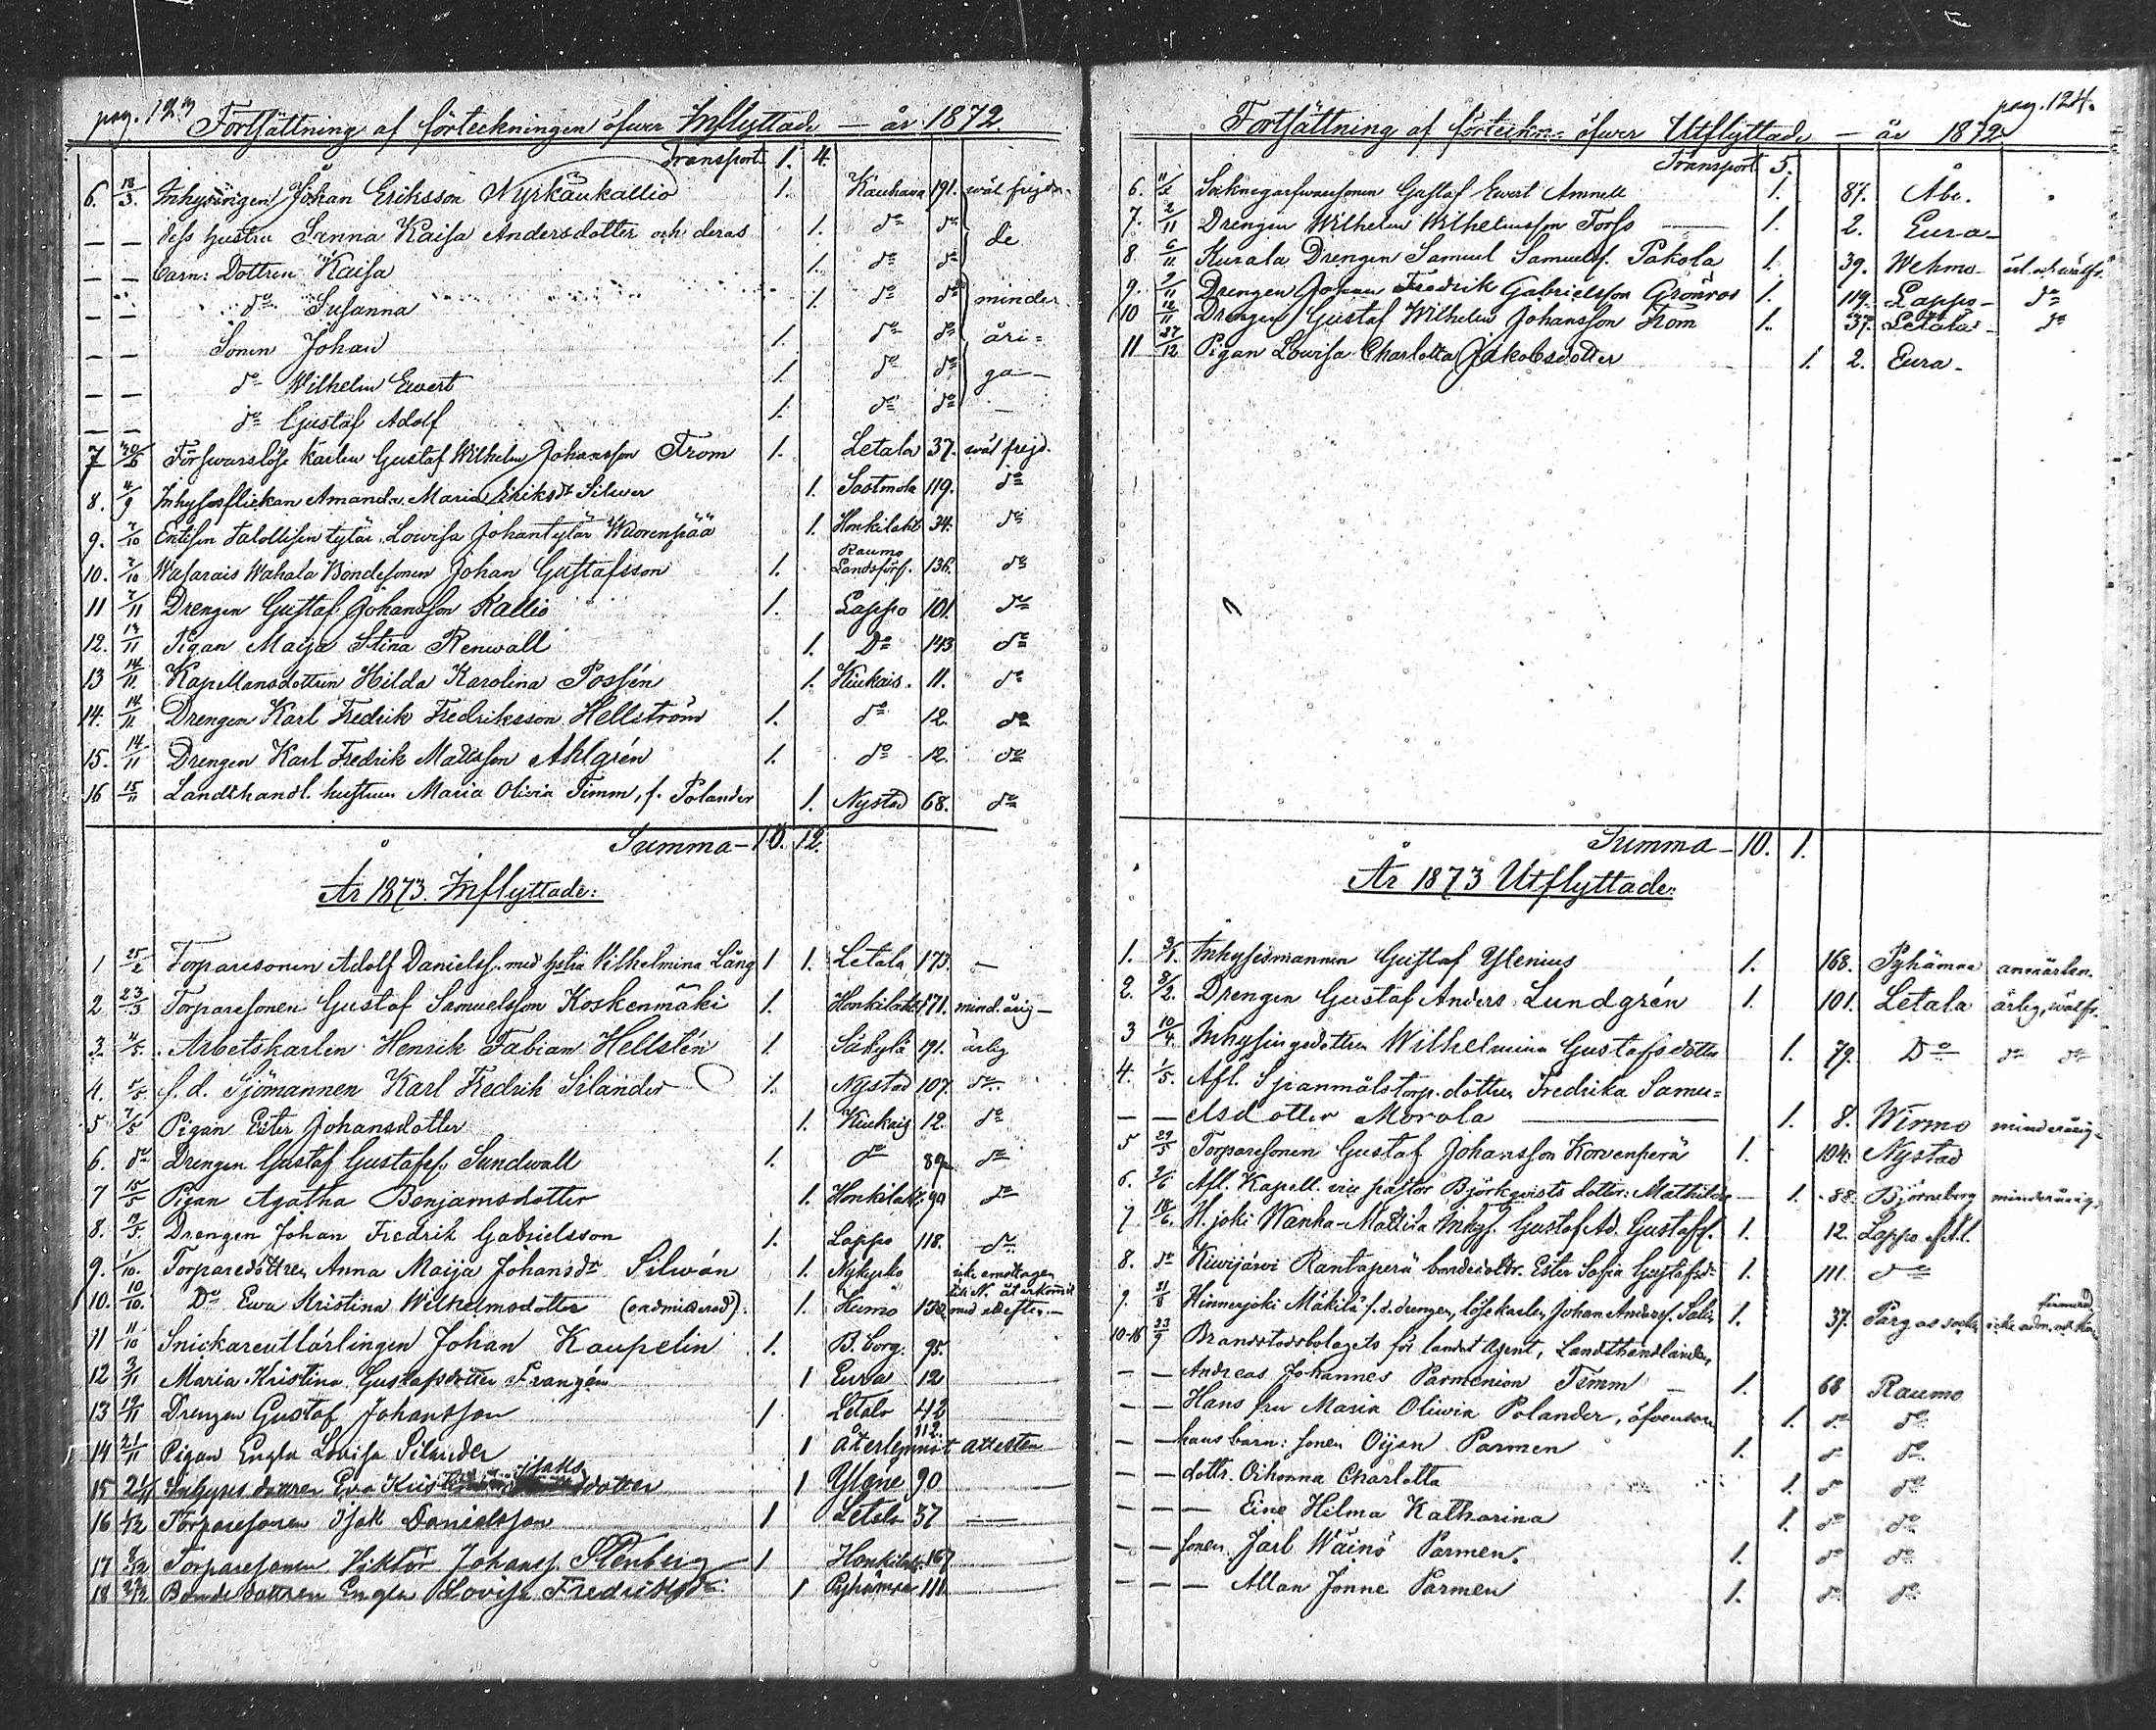 pag. 123
Fortsättning af förteckningen öfwer Inflyttade — år 1872.
Transport 1. 4.
6. 18/3 Inhysingen Johan Eriksson Nyrkäukallio 1. Kauhava 191. wäl frejd.
— — dess hustru Sanna Kaisa Andersdotter och deras 1. do do de
— — barn: Dottren Kaisa 1. do do
— — do Susanna 1. do do minder
— — Sonen Johan 1. do do åri=
— — do Wilhelm Ewert 1. do do ga —
— — do Gustaf Adolf 1. do do —
7 30/6 Förswarslöse karlen Gustaf Wilhelm Johansson From 1. Letala 37. wäl frejd.
8. 4/9 Inhysesflickan Amanda Maria Eriksdr Silwer 1. Sastmola 119. do
9. 7/10 Entisen talollisen tytär Lowisa Johantytär Waorenpää 1. Honkilaht 34. do
10. 7/10 Wasarais Wahala Bondesonen Johan Gustafsson 1. Raumo Landsförs. 136. do
11 7/11 Drengen Gustaf Johansson Kallio 1. Lappo 101. do
12. 13/11 Pigan Maija Stina Renwall 1. Do 143 do
13 14/11 Kapellansdottren Hilda Karolina Possén 1. Kiukais. 11. do
14. 14/11 Drengen Karl Fredrik Fredriksson Hellström 1. do 12. do
15. 14/11 Drengen Karl Fredrik Mattsson Ahlgrén 1. do 12. do
16 15/11 Landthandl. hustrun Maria Olivia Timm, f. Polander 1. Nystad 68. do
Summa — 10. 12.
År 1873. Inflyttade:
1 25/2 Torparesonen Adolf Danielss. med hstru Vilhelmina Lång 1 1. Letala 173. —
2 23/3 Torparesonen Gustaf Samuelsson Koskenmäki 1. Honkilaht 171. mind. årig —
3. 4/5 Arbetskarlen Henrik Fabian Hellstén 1. Säkylä 191. ärlig
4. 5/5 f. d. Sjömannen Karl Fredrik Silander 1. Nystad 107. do
5 7/5 Pigan Ester Johansdotter 1. Kiukais 12. do
6. do Drengen Gustaf Gustafss. Sundwall 1. do 89. do
7 15/5 Pigan Agatha Benjamsdotter 1. Honkilaht. 90 do
8. 9/5. Drengen Johan Fredrik Gabrielsson 1. Lappo 118. do
9. 1/10. Torparedottren Anna Maija Johansdr Silwán 1. Nykyrko icke emottagen
10. 10/10. Do Ewa Kristina Wilhelmsdotter (admitterad). 1. Humo med
11 11/10 Snickareutlärlingen Johan Kaupelin 1. B. borg. 95.
12 3/11 Maria Kristina Gustafsdotter Frangén 1 Eura 12
13 19/11 Drengen Gustaf Johansson 1 Letala 42
14 21/11 Pigan Engla Lovisa Silander 1 112. Återlemnat attesten
15 21/11 Inhyses dottren Eva Kristina Isaks dotter 1 Yläne 90
16 1/12 Torparesonen Isak Danielsson 1 Letala 37 —
17 9/12 Torparesonen Viktor Johanss. Stenberg 1 Honkilaht. 167
18 27/12 Bondedottren Engla Lovisa Fredriksdr 1 Pyhämaa 111
pag. 124.
Fortsättning af förteckn. öfwer Utflyttade — år 1872
Transport 5.
6. 11/2 Gustaf Ewert Amnell 1. 87. Åbo.
7. 2/11 Drengen Wilhelm Wilhelmsson Forss — 1. 2. Eura —
8. 6/11 Kurala Drengen Samuel Samuelss. Pakola 1. 39. Wehmo ärl. och wälfr.
9. 9/11 Drengen Johan Fredrik Gabrielsson Grönros 1. 119. Lappo — do
10 12/11 Drengen Gustaf Wilhelm Johansson From 1. 37. Letala — do
11 27/12 Pigan Lowisa Charlotta Jakobsdotter 1. 2. Eura —
Summa — 10. 1.
År 1873 Utflyttade:
1. 3/1. Inhysesmannen Gustaf Ylenius 1. 168. Pyhämaa anmärkn.
2. 8/2. Drengen Gustaf Anders Lundgrén 1. 101. Letala ärlig, wälfr.
3 10/4. Inhysingsdottren Wilhelmina Gustafsdotter 1. 79. Do do do
4. 1/5. Afl. Spanmålstorp. dottren Fredrika Samu=
— — elsdotter Morola — 1. 8. Wirmo minderårig
5 29/5 Torparesonen Gustaf Johansson Korvenperä 1. 104. Nystad
6. 2/6 Afl. Kapell. vice pastor Björkqvists dotter: Mathilda — 1. 88. Björneborg minderårig.
7 18/6. H. joki Wanha-Mattila Inhys. Gustaf Ad. Gustafss. 1. 12. Lappo
8. do Kiwijärvi Rantaperä bondedotr. Ester Sofia Gustafsdr 1. 111. do
9. 31/8 Hinnerjoki Mäkilä f.d. drengen, lösekarlen Johan Anderss. Salin 1. 37. Pargas socken icke adm.
10-16 23/9 Brandstodsbolagets för landet Agent, Landthandlanden
— — Andreas Johannes Parmenion Timm 1. 68 Raumo
— — Hans fru Maria Oliwia Polander, äfvensom 1. do do
— — hans barn: sonen Oijan Parmen 1. do do
— — dottr. Oihonna Charlotta 1. do do
— — — Eine Hilma Katharina 1. do do
— — sonen Jarl Wäinö Parmen. 1. do do
— — — Allan Jonne Parmen 1. do do